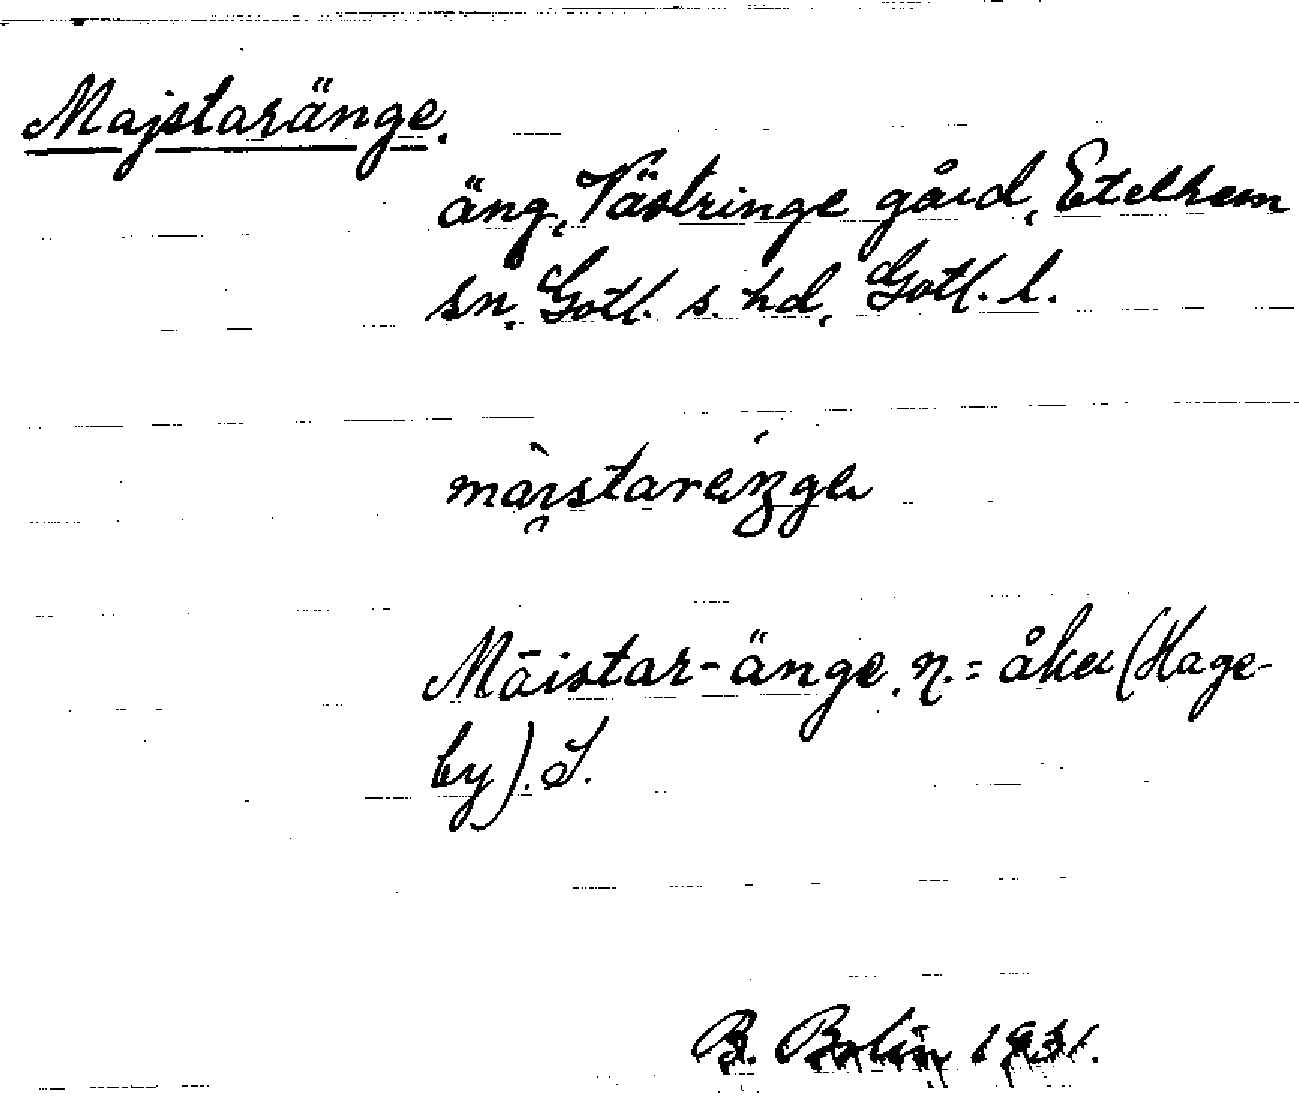 Majstaränge.
äng, Västringe gård, Etelhem
sn, Gotl. s. hd, Gotl. l.
Māistar-änge. n. = åker (Hage-
by). S.
B. Bolin 1931.